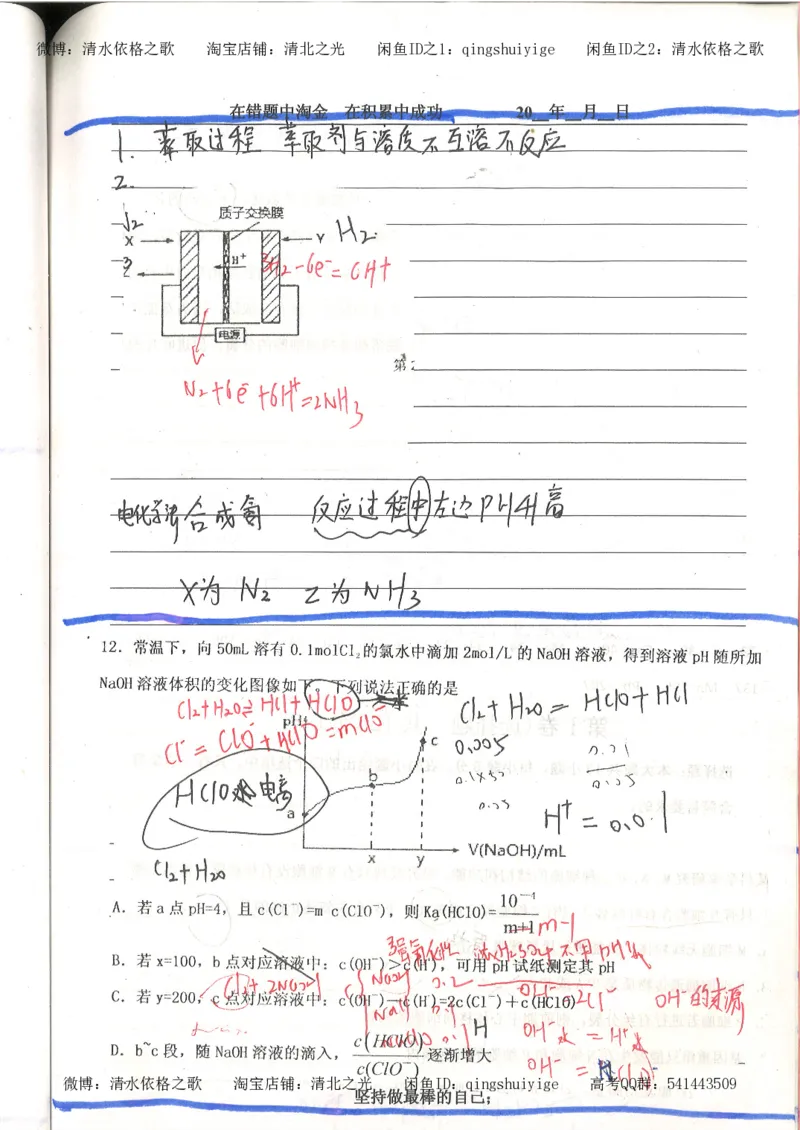 微博：清水依格之歌 淘宝店铺：清北之光 闲鱼ID之1：qingshuiyige 闲鱼ID之2：清水依格之歌
在错题中淘金 在积累中成功 20__年__月__日
1. 萃取过程 萃取剂与溶质不互溶不反应
2.
质子交换膜
N2
X Y H2
Z H+ 3H2-6e-=6H+
电源
第2
N2+6e-+6H+=2NH3
电化学法合成氨 反应过程中左边PH升高
X为 N2 Z为NH3
12. 常温下，向50mL溶有0.1molCl2的氯水中滴加2mol/L的NaOH溶液，得到溶液pH随所加
NaOH溶液体积的变化图像如下。下列说法正确的是
Cl2+H2O⇌HCl+HClO
Cl2+H2O = HClO+HCl
pH
Cl-=ClO-+HClO=mClO-
c
0.005
b
HClO 电离
a
H+ = 0.01
x y V(NaOH)/mL
Cl2+H2O
A. 若a点pH=4，且c(Cl-)=m c(ClO-)，则Ka(HClO)= 10-4/m+1
m-1
强氧化性 浓H2SO4 不用pH试
B. 若x=100，b点对应溶液中：c(OH-)>c(H+)，可用pH试纸测定其pH
Cl2+2NaOH
OH-的来源
C. 若y=200，c点对应溶液中：c(OH-)-c(H+)=2c(Cl-)+c(HClO)
NaOH 0.2
NaCl 0.1
NaClO 0.1
OH-水 = H+水
D. b~c段，随NaOH溶液的滴入，c(HClO)/c(ClO-) 逐渐增大
微博：清水依格之歌 淘宝店铺：清北之光 闲鱼ID：qingshuiyige 高考QQ群：541443509
坚持做最棒的自己；